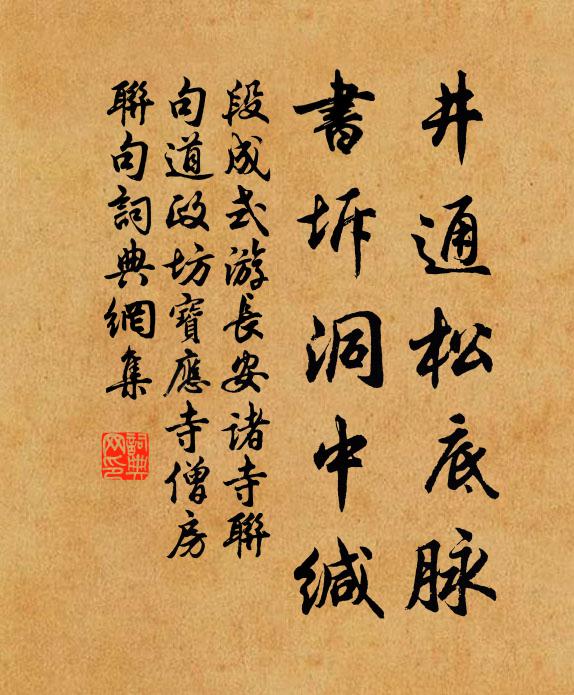 井通松底脉
書坼洞中缄
段成式游長安諸寺聯
句道政坊寶應寺僧房
聯句詞典網集
詞典
网印